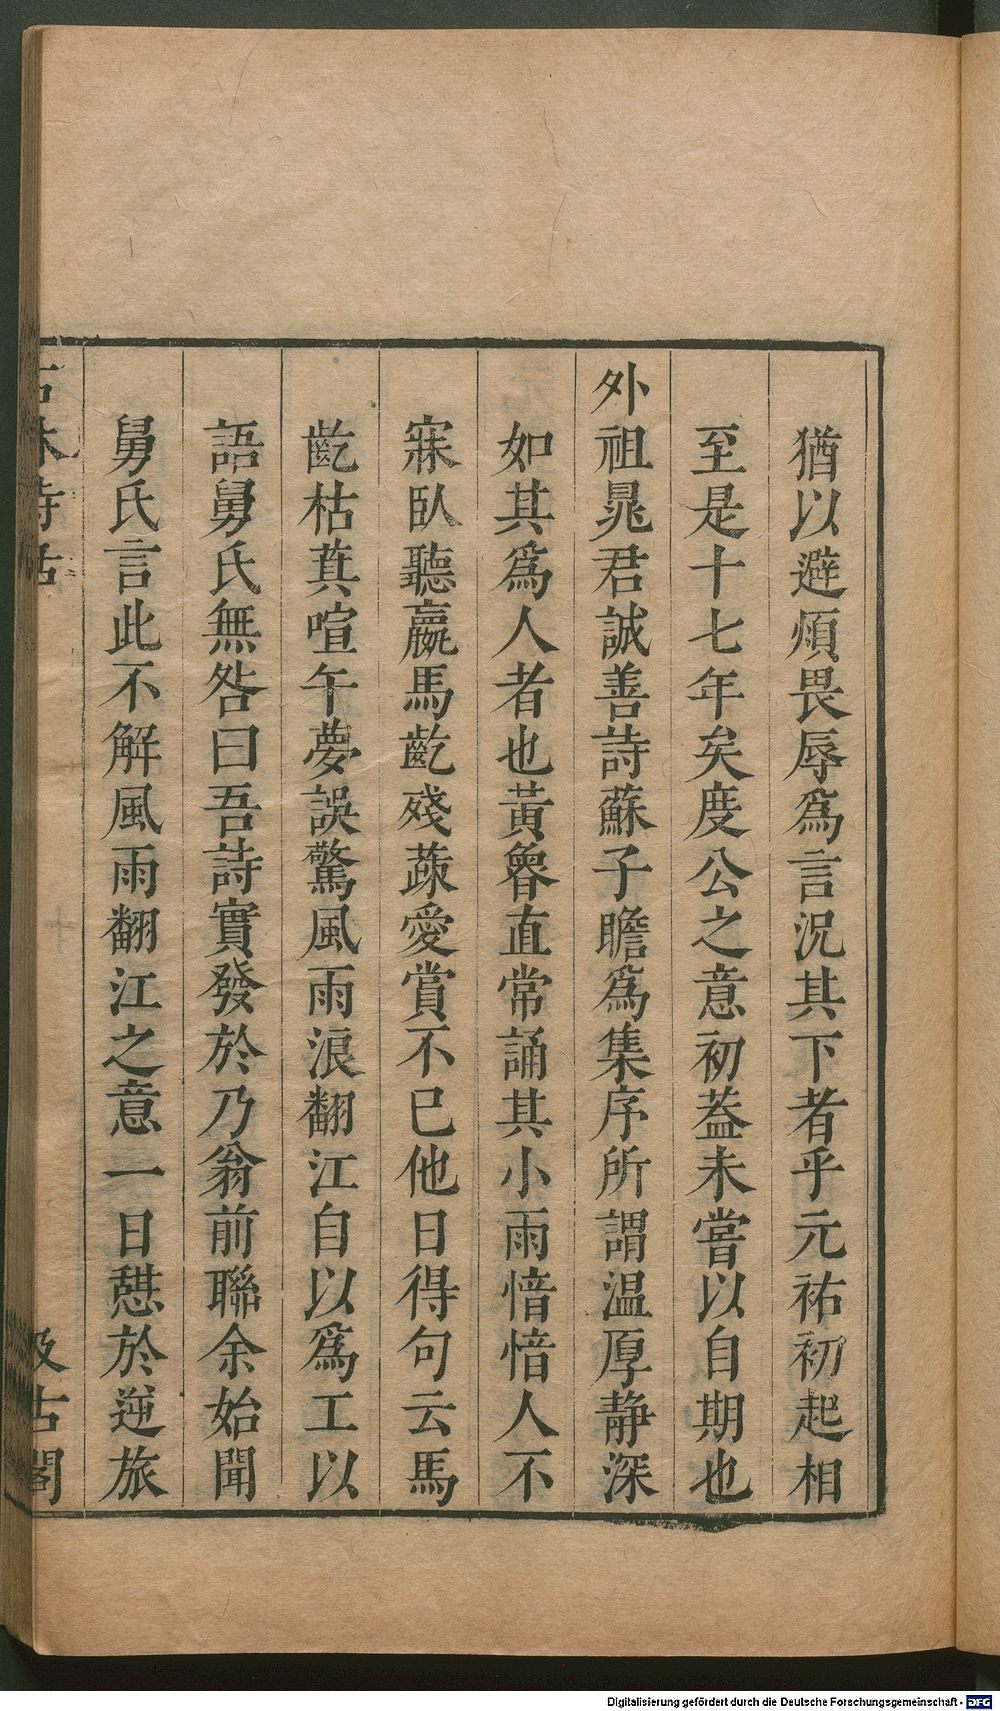 猶以避煩畏辱爲言況其下者乎元祐初起相
至是十七年矣度公之意初葢未嘗以自期也
外祖晁君誠善詩蘇子瞻爲集序所謂温厚静深
如其爲人者也黃魯直常誦其小雨愔愔人不
寐臥聽羸馬齕殘蔬愛賞不已他日得句云馬
齕枯萁喧午夢誤驚風雨浪翻江自以爲工以
語舅氏無咎曰吾詩實發於乃翁前聯余始聞
舅氏言此不解風雨翻江之意一日憇於逆旅
石林詩話
汲古閣
Digitalisierung gefördert durch die Deutsche Forschungsgemeinschaft - DFG